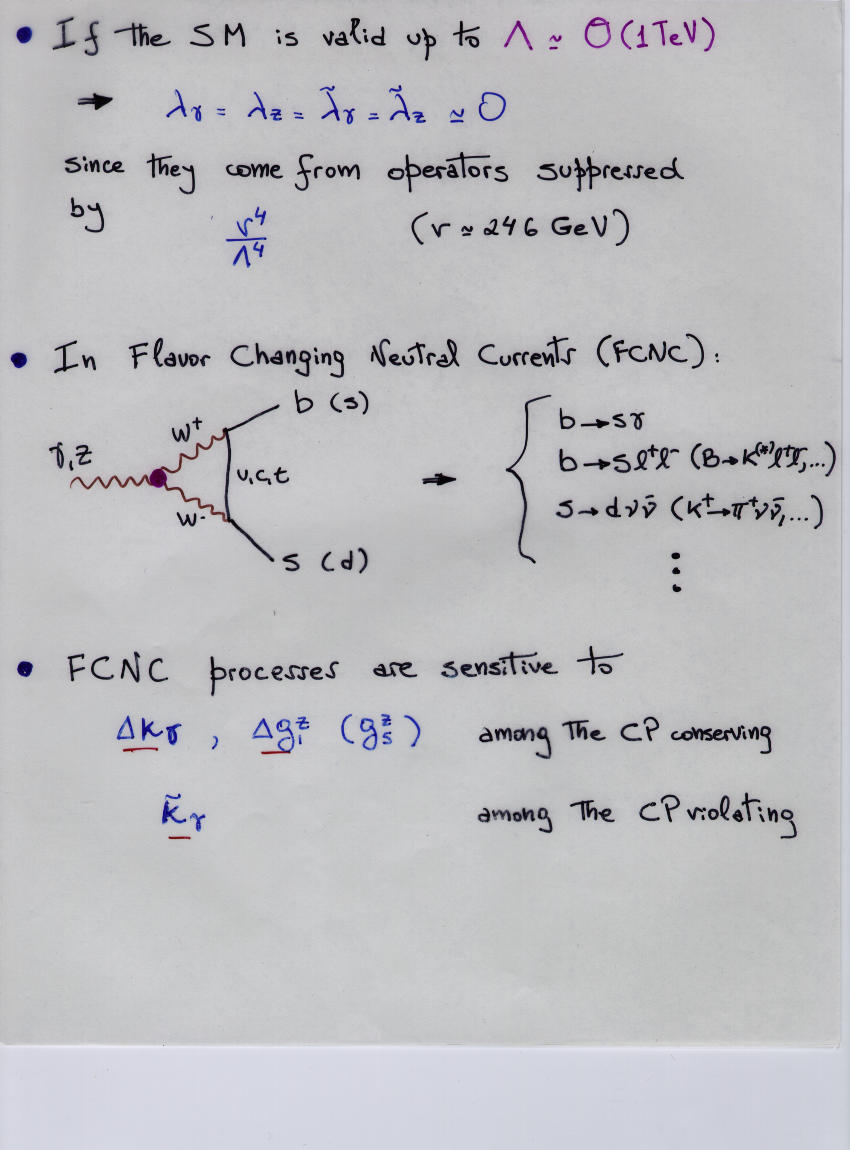 • If the SM is valid up to Λ ≃ O(1 TeV)
➡ λγ = λz = λ̃γ = λ̃z ≃ O
since they come from operators suppressed
by v⁴/Λ⁴ (v ≃ 246 GeV)
• In Flavor Changing Neutral Currents (FCNC):
γ, Z
W⁺
W⁻
u, c, t
b (s)
s (d)
➡
b → sγ
b → s l⁺l⁻ (B → K⁽*⁾l⁺l⁻, ...)
s → d ν ν̄ (K⁺ → π⁺ν ν̄, ...)
⋮
• FCNC processes are sensitive to
Δκγ , Δg₁ᶻ (g₅ᶻ) among the CP conserving
κ̃γ among the CP violating